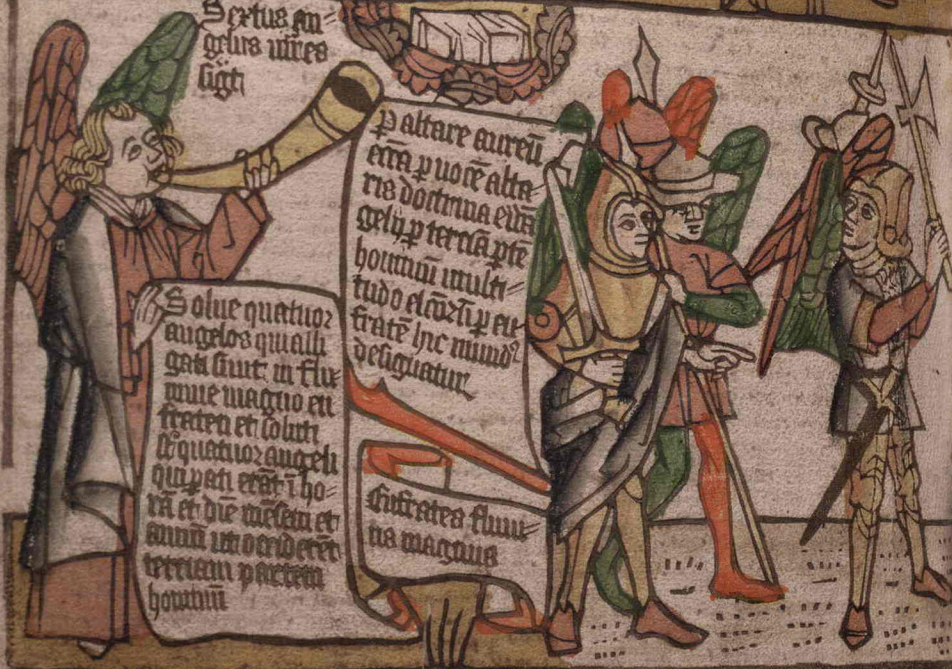 Sextus an=
gelus
Solue quatuor
angelos qui alli
gati sunt in flu
mine magno eu
frates et soluti
st quatuor angeli
qui pati erāt ī ho=
rā et diē mesem et
annū ut occiderēt
terciam partem
hominū
P altare aureū
xp̄c p uocē alta=
ris doctrina euā
gelij p terciā ptē
hominū multi=
tudo p eu
fratē hic mund9
designatur
Eufrates fluui=
us magnus